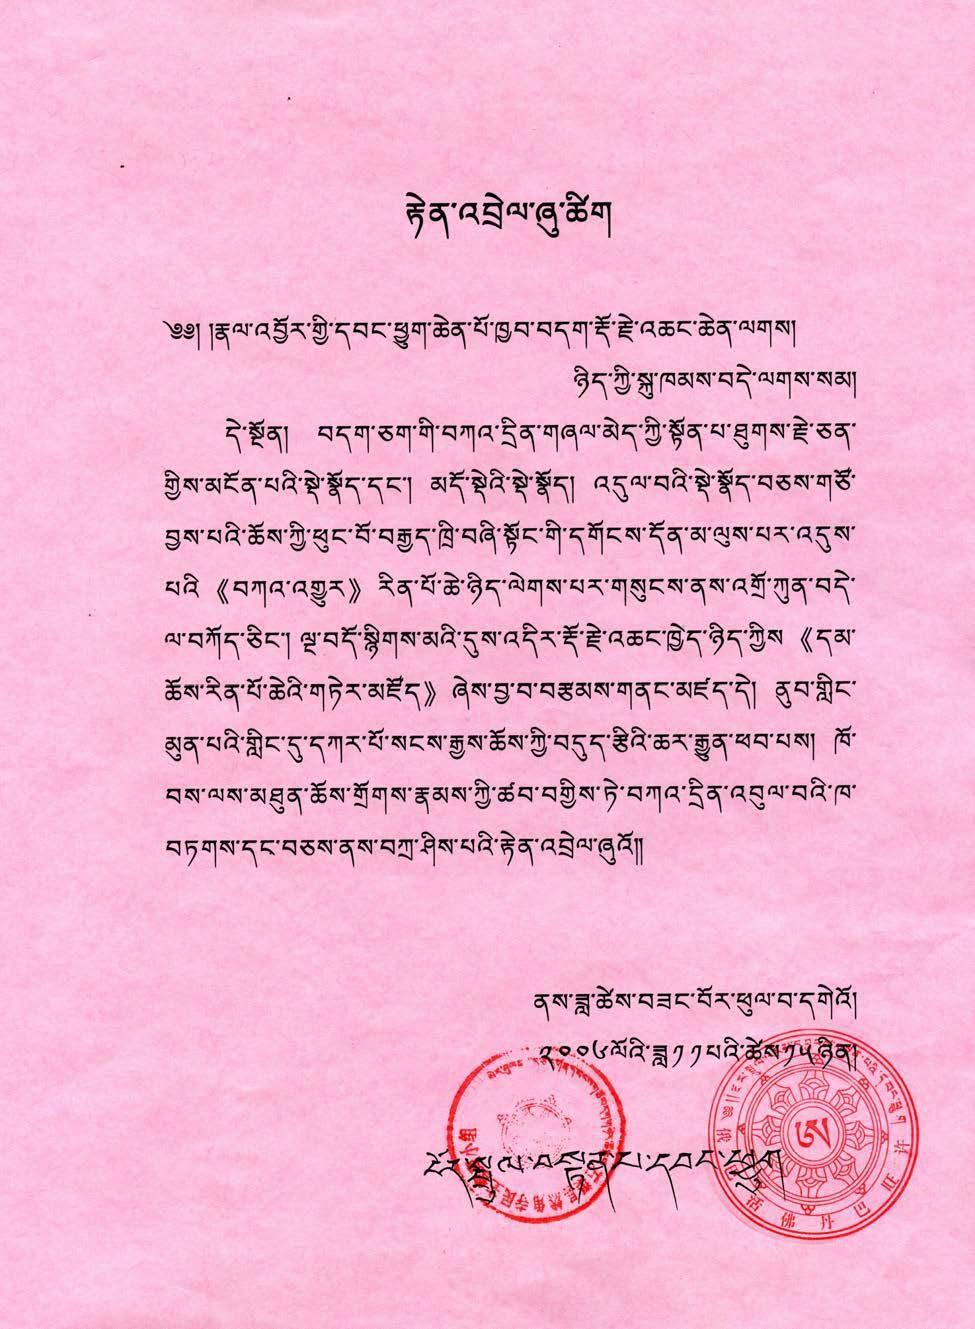 རྟེན་འབྲེལ་ཞུ་ཚིག
༄༅། །རྣལ་འབྱོར་གྱི་དབང་ཕྱུག་ཆེན་པོ་ཁྱབ་བདག་རྡོ་རྗེ་འཆང་ཆེན་ལགས།
ཉིད་ཀྱི་སྐུ་ཁམས་བདེ་ལགས་སམ།
དེ་སྔོན། བདག་ཅག་གི་བཀའ་དྲིན་གཞལ་མེད་ཀྱི་སྟོན་པ་ཐུགས་རྗེ་ཅན་
གྱིས་མངོན་པའི་སྡེ་སྣོད་དང་། མདོ་སྡེའི་སྡེ་སྣོད། འདུལ་བའི་སྡེ་སྣོད་བཅས་གཙོ་
བྱས་པའི་ཆོས་ཀྱི་ཕུང་པོ་བརྒྱད་ཁྲི་བཞི་སྟོང་གི་དགོངས་དོན་མ་ལུས་པར་འདུས་
པའི 《བཀའ་འགྱུར》 རིན་པོ་ཆེ་ཉིད་ལེགས་པར་གསུངས་ནས་འགྲོ་ཀུན་བདེ་
ལ་བཀོད་ཅིང་། ལྔ་བདོ་སྙིགས་མའི་དུས་འདིར་རྡོ་རྗེ་འཆང་ཁྱེད་ཉིད་ཀྱིས 《དམ་
ཆོས་རིན་པོ་ཆེའི་གཏེར་མཛོད》 ཞེས་བྱ་བ་བརྩམས་གནང་མཛད་དེ། ནུབ་གླིང་
མུན་པའི་གླིང་དུ་དཀར་པོ་སངས་རྒྱས་ཆོས་ཀྱི་བདུད་རྩིའི་ཆར་རྒྱུན་ཕབ་པས། ཁོ་
བས་ལས་མཐུན་ཆོས་གྲོགས་རྣམས་ཀྱི་ཚབ་བགྱིས་ཏེ་བཀའ་དྲིན་འབུལ་བའི་ཁ་
བཏགས་དང་བཅས་ནས་བཀྲ་ཤིས་པའི་རྟེན་འབྲེལ་ཞུའོ།།
ནས་ཟླ་ཚེས་བཟང་པོར་ཕུལ་བ་དགེའོ།
༢༠༠༦ལོའི་ཟླ་༡༡པའི་ཚེས་༡༥ཉིན།
བསྟན་པ་དབང་ཕྱུག
ཨ
活佛丹巴